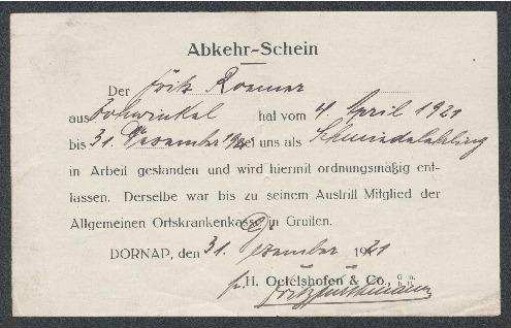 Abkehr-Schein
Der Fritz Roemer
aus Vohwinkel hat vom 4 April 1921
bis 31. Dezember 1921 bei uns als Schmiedelehrling
in Arbeit gestanden und wird hiermit ordnungsmäßig ent-
lassen. Derselbe war bis zu seinem Austritt Mitglied der
Allgemeinen Ortskrankenkasse in Gruiten.
DORNAP, den 31. Dezember 1921
H. Oetelshofen & Co.,